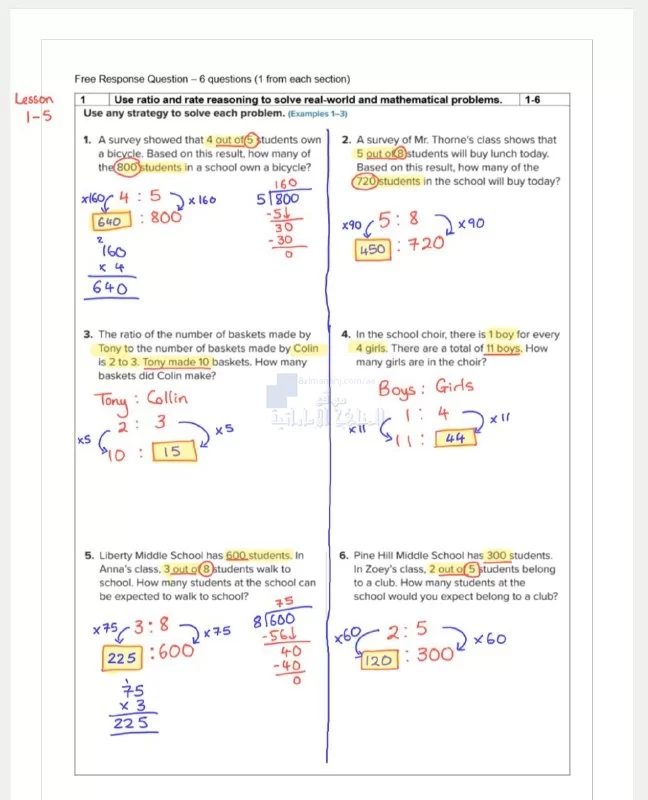 Free Response Question – 6 questions (1 from each section)
Lesson
1-5
1 Use ratio and rate reasoning to solve real-world and mathematical problems. 1-6
Use any strategy to solve each problem. (Examples 1–3)
1. A survey showed that 4 out of 5 students own
a bicycle. Based on this result, how many of
the 800 students in a school own a bicycle?
x160 4 : 5 x160
640 : 800
2
160
x 4
640
160
5 800
-5
30
-30
0
2. A survey of Mr. Thorne's class shows that
5 out of 8 students will buy lunch today.
Based on this result, how many of the
720 students in the school will buy today?
x90 5 : 8 x90
450 : 720
3. The ratio of the number of baskets made by
Tony to the number of baskets made by Colin
is 2 to 3. Tony made 10 baskets. How many
baskets did Colin make?
Tony : Collin
2 : 3
x5 x5
10 : 15
4. In the school choir, there is 1 boy for every
4 girls. There are a total of 11 boys. How
many girls are in the choir?
Boys : Girls
1 : 4
x11 x11
11 : 44
موقع
المناهج الإماراتية
5. Liberty Middle School has 600 students. In
Anna's class, 3 out of 8 students walk to
school. How many students at the school can
be expected to walk to school?
x75 3 : 8 x75
225 : 600
1
75
x 3
225
75
8 600
-56
40
-40
0
6. Pine Hill Middle School has 300 students.
In Zoey's class, 2 out of 5 students belong
to a club. How many students at the
school would you expect belong to a club?
x60 2 : 5 x60
120 : 300